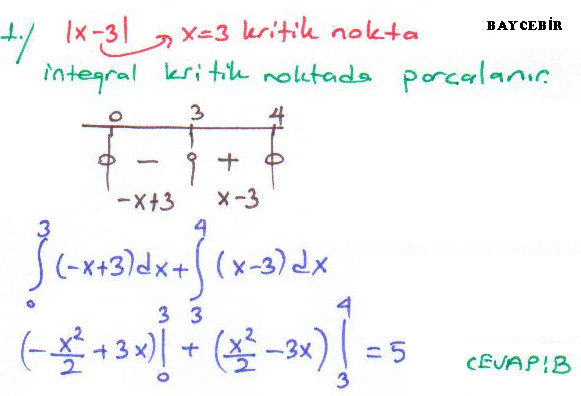 1./ |x-3| → x=3 kritik nokta
BAYCEBİR
integral kritik noktada parçalanır.
0 3 4
- +
-x+3 x-3
∫₀³ (-x+3)dx + ∫₃⁴ (x-3)dx
(-x²/2 + 3x)|₀³ + (x²/2 - 3x)|₃⁴ = 5
CEVAP: B